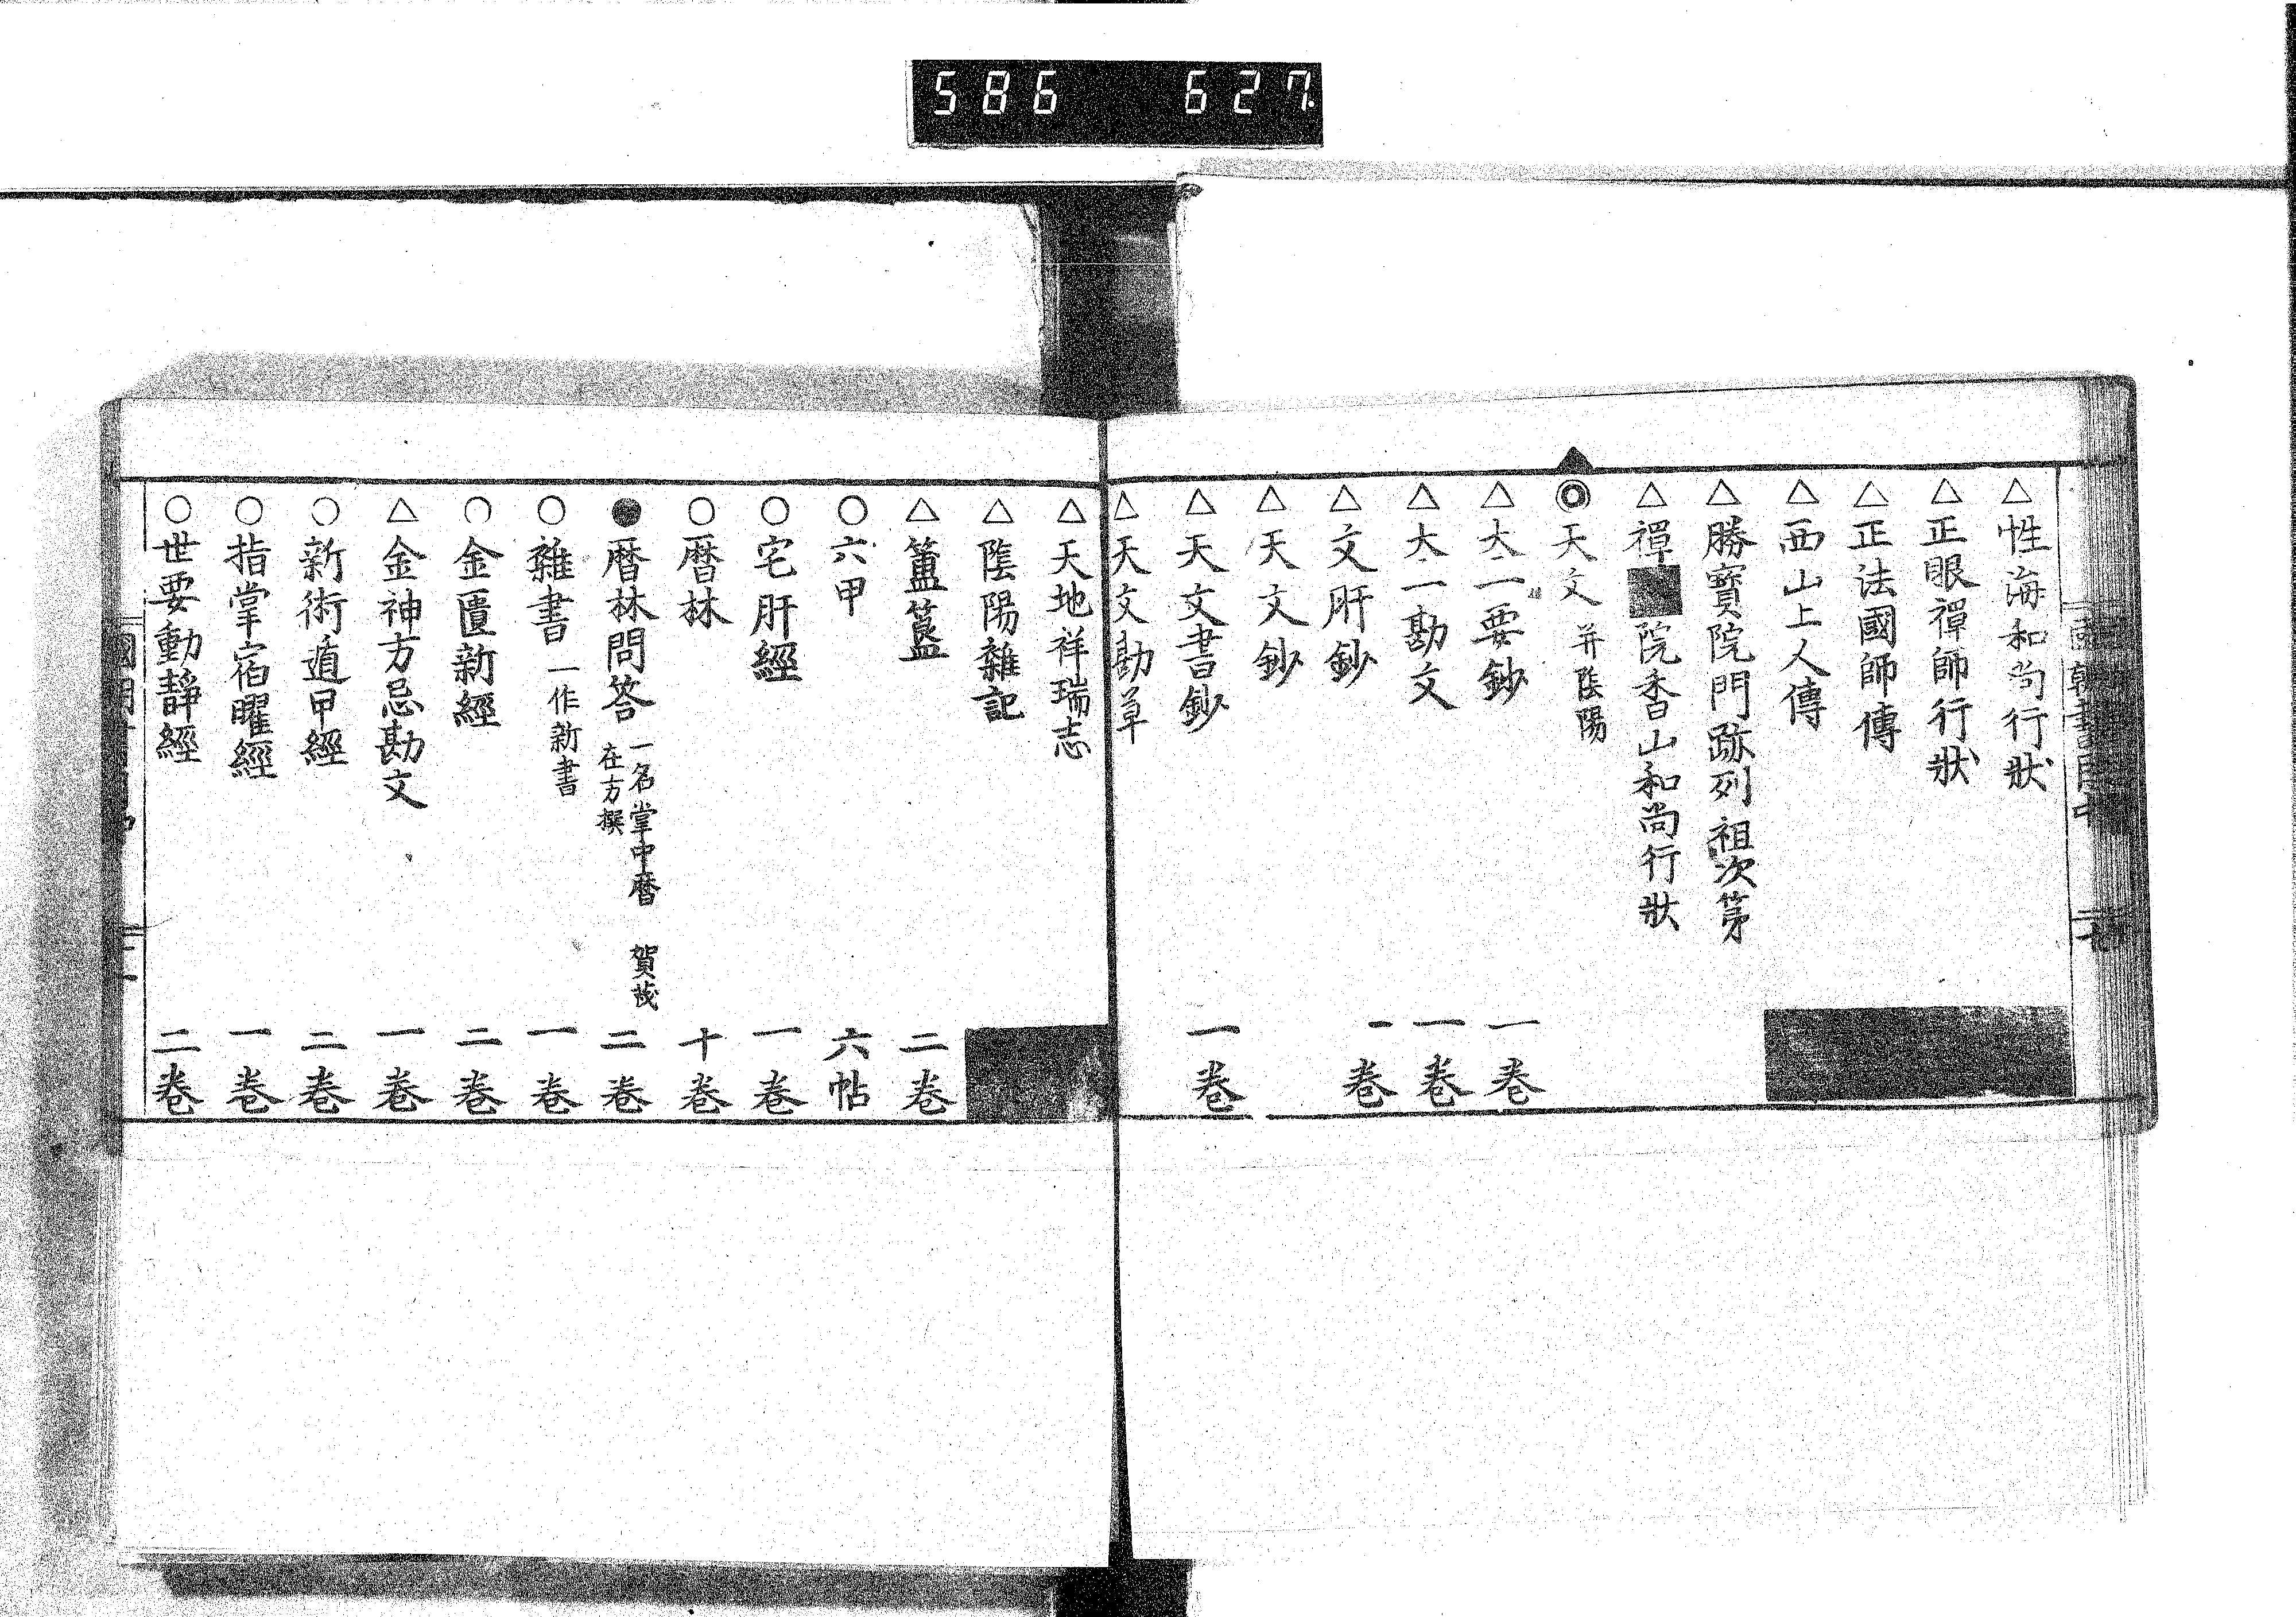 586 627.
△性海和尚行狀
△正眼禪師行狀
△正法國師傳
△西山上人傳
△勝寶院門跡列祖次第
△禪■院香山和尚行狀
◎天文并陰陽
△大一要鈔 一卷
△大一勘文 一卷
△文肝鈔 一卷
△天文鈔
△天文書鈔 一卷
△天文勘草
△天地祥瑞志
△陰陽雜記
△簠簋 二卷
○六甲 六帖
○宅肝經 一卷
○暦林 十卷
●暦林問答 一名掌中暦 賀茂在方撰 二卷
○雜書 一作新書 一卷
○金匱新經 二卷
△金神方忌勘文 一卷
○新術遁甲經 二卷
○指掌宿曜經 一卷
○世要動靜經 二卷